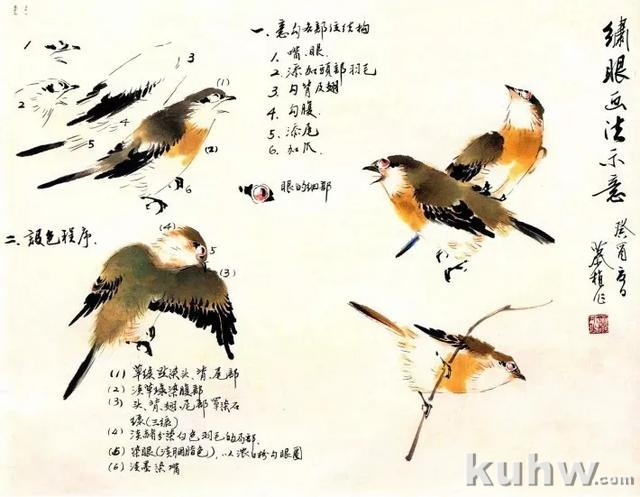 繡眼画法示意
癸酉夏日
一、意勾各部位结构
1. 嘴、眼.
2. 添加頭部羽毛
3. 勾背及翅
4. 勾腹.
5. 添尾
6. 加爪
眼的细部
1
2
3
4
5
(1)
(2)
6
二、設色程序.
(4)
5
(3)
(1) 草绿点染头、背、尾部
(2) 淡草绿染腹部
(3) 头、背、翅、尾部罩染石
绿(三绿)
(4) 淡赭分染白色羽毛的局部.
(5) 染眼(淡胭脂色), 以浓白粉勾眼圈
(6) 淡墨染嘴
kuhw.com